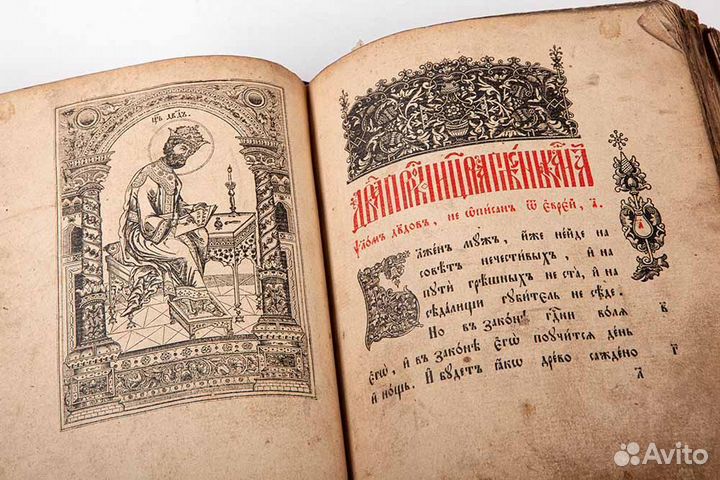 црь двдъ.
ѱало́мъ дв҃довъ, не ѡписанъ ѿ еврей, а҃.
Блаженъ мужъ, иже нейде на
совѣтъ нечестивыхъ, и на
пути грѣшныхъ не ста, и на
сѣдалищи губитель не сѣде.
Но въ законѣ гдⷭ҇ни воля в҃
егѡ, и въ законѣ егѡ поучится день
и нощь. И будетъ ꙗкѡ древо саждено г҃
Avito